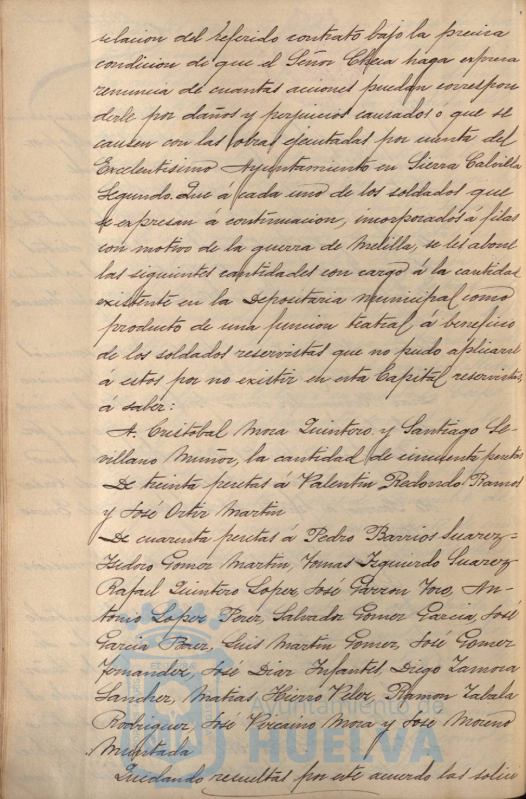 relacion del referido contrato bajo la precisa
condicion de que el Señor Checa haga expresa
renuncia de cuantas acciones puedan correspon
derle por daños y perjuicios causados ó que se
causen con las obras ejecutadas por cuenta del
Excelentisimo Ayuntamiento en Sierra Calvilla
Segundo. Que á cada uno de los soldados que
se expresan á continuacion, incorporados á filas
con motivo de la guerra de Melilla, se les abone
las siguientes cantidades con cargo á la cantidad
existente en la Depositaria municipal como
producto de una funcion teatral á beneficio
de los soldados reservistas que no pudo aplicarse
á estos por no existir en esta Capital reservistas,
á saber:
A. Cristobal Mora Quintero y Santiago Se-
villano Muñoz, la cantidad de cincuenta pesetas
De treinta pesetas á Valentin Redondo Ramos
y José Ortiz Martin
De cuarenta pesetas á Pedro Barrios Suarez=
Isidoro Gomez Martin, Tomas Izquierdo Suarez
Rafael Quintero Lopez, José Garzon Toro, An-
tonio Lopez Perez, Salvador Gomez Garcia, José
Garcia Baez, Luis Martin Gomez, José Gomez
Fernandez, José Diaz Infantes, Diego Zamora
Sanchez, Matias Hierro Velez, Ramon Zabala
Rodriguez, José Vizcaino Mora y José Moreno
Muntada
Quedando resueltas por este acuerdo las solici
Ayuntamiento de
HUELVA